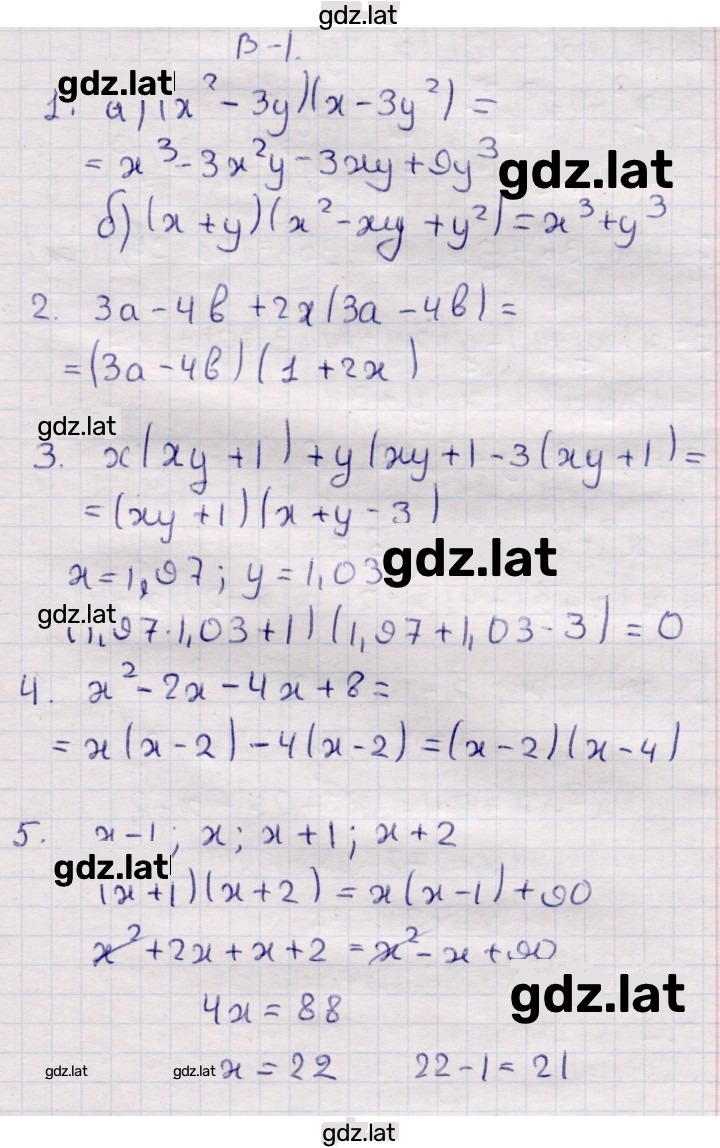 gdz.lat
В-1.
gdz.lat
1. а) (x² - 3y)(x - 3y²) =
= x³ - 3x²y - 3xy + 9y³
gdz.lat
б) (x + y)(x² - xy + y²) = x³ + y³
2. 3а - 4в + 2x(3а - 4в) =
= (3а - 4в)(1 + 2x)
gdz.lat
3. x(xy + 1) + y(xy + 1 - 3(xy + 1) =
= (xy + 1)(x + y - 3)
x = 1,97; y = 1,03
gdz.lat
gdz.lat
(1,97·1,03 + 1)(1,97 + 1,03 - 3) = 0
4. x² - 2x - 4x + 8 =
= x(x - 2) - 4(x - 2) = (x - 2)(x - 4)
5. x - 1; x; x + 1; x + 2
gdz.lat
(x + 1)(x + 2) = x(x - 1) + 90
x² + 2x + x + 2 = x² - x + 90
gdz.lat
4x = 88
gdz.lat
gdz.lat
x = 22 22 - 1 = 21
gdz.lat